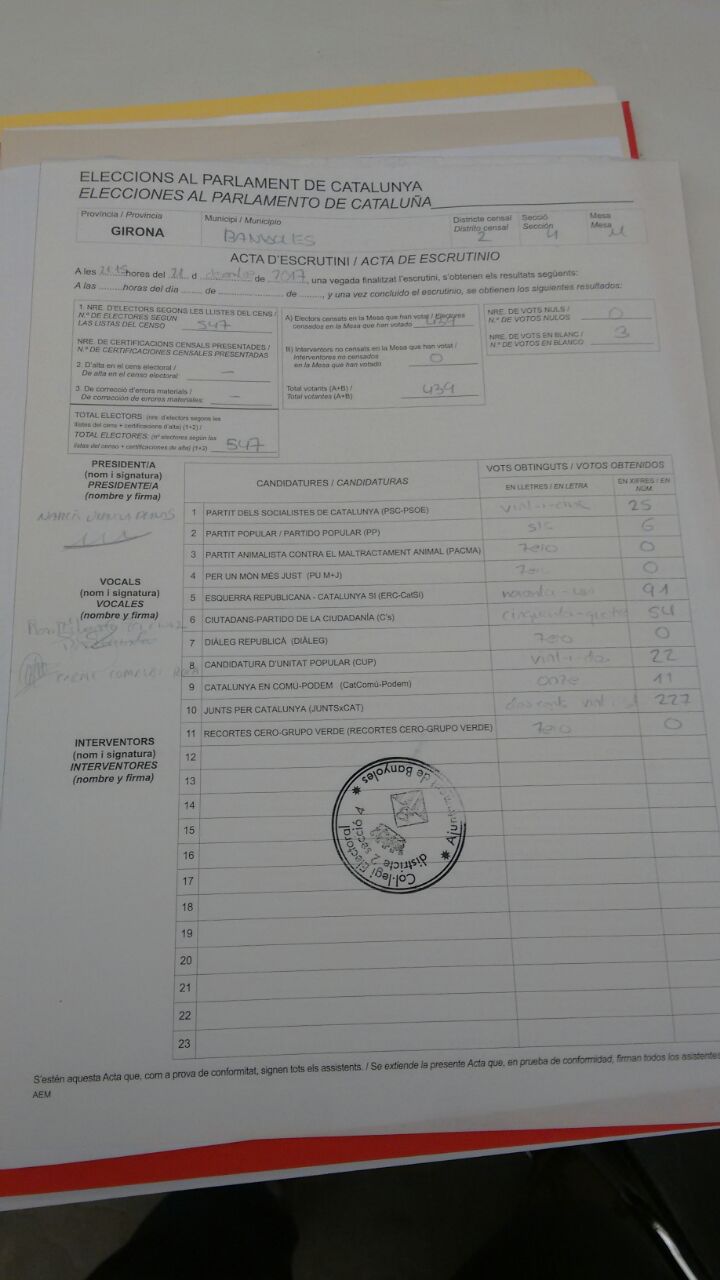 ELECCIONS AL PARLAMENT DE CATALUNYA
ELECCIONES AL PARLAMENTO DE CATALUÑA
Província / Provincia
GIRONA
Municipi / Municipio
BANYOLES
Districte censal
Distrito censal
2
Secció
Sección
4
Mesa
Mesa
U
ACTA D'ESCRUTINI / ACTA DE ESCRUTINIO
A les 21:15 hores del 21 d desembre de 2017, una vegada finalitzat l'escrutini, s'obtenen els resultats següents:
A las .........horas del día ....... de ...................... de ........, y una vez concluido el escrutinio, se obtienen los siguientes resultados:
1. NRE. D'ELECTORS SEGONS LES LLISTES DEL CENS /
N.º DE ELECTORES SEGÚN
LAS LISTAS DEL CENSO 547
NRE. DE CERTIFICACIONS CENSALS PRESENTADES /
N.º DE CERTIFICACIONES CENSALES PRESENTADAS
2. D'alta en el cens electoral /
De alta en el censo electoral: —
3. De correcció d'errors materials /
De corrección de errores materiales: —
TOTAL ELECTORS: (nre. d'electors segons les
llistes del cens + certificacions d'alta) (1+2) /
TOTAL ELECTORES: (nº electores según las
listas del censo + certificaciones de alta) (1+2) 547
A) Electors censats en la Mesa que han votat / Electores
censados en la Mesa que han votado 439
B) Interventors no censats en la Mesa que han votat /
Interventores no censados
en la Mesa que han votado 0
Total votants (A+B) /
Total votantes (A+B) 439
NRE. DE VOTS NULS /
N.º DE VOTOS NULOS 0
NRE. DE VOTS EN BLANC /
N.º DE VOTOS EN BLANCO 3
PRESIDENT/A
(nom i signatura)
PRESIDENTE/A
(nombre y firma)
VOCALS
(nom i signatura)
VOCALES
(nombre y firma)
INTERVENTORS
(nom i signatura)
INTERVENTORES
(nombre y firma)
CANDIDATURES / CANDIDATURAS
VOTS OBTINGUTS / VOTOS OBTENIDOS
EN LLETRES / EN LETRA
EN XIFRES / EN NÚM.
1 PARTIT DELS SOCIALISTES DE CATALUNYA (PSC-PSOE) vint-i-cinc 25
2 PARTIT POPULAR / PARTIDO POPULAR (PP) sis 6
3 PARTIT ANIMALISTA CONTRA EL MALTRACTAMENT ANIMAL (PACMA) zero 0
4 PER UN MÓN MÉS JUST (PU M+J) zero 0
5 ESQUERRA REPUBLICANA - CATALUNYA SI (ERC-CatSi) noranta-un 91
6 CIUTADANS-PARTIDO DE LA CIUDADANÍA (C's) cinquanta-quatre 54
7 DIÀLEG REPUBLICÀ (DIÀLEG) zero 0
8 CANDIDATURA D'UNITAT POPULAR (CUP) vint-i-dos 22
9 CATALUNYA EN COMÚ-PODEM (CatComú-Podem) onze 11
10 JUNTS PER CATALUNYA (JUNTSxCAT) dos-cents vint-i-set 227
11 RECORTES CERO-GRUPO VERDE (RECORTES CERO-GRUPO VERDE) zero 0
12
13
14
15
16
17
18
19
20
21
22
23
Ajuntament de Banyoles
Col·legi Electoral
districte 2 secció 4
S'estén aquesta Acta que, com a prova de conformitat, signen tots els assistents. / Se extiende la presente Acta que, en prueba de conformidad, firman todos los asistentes
AEM